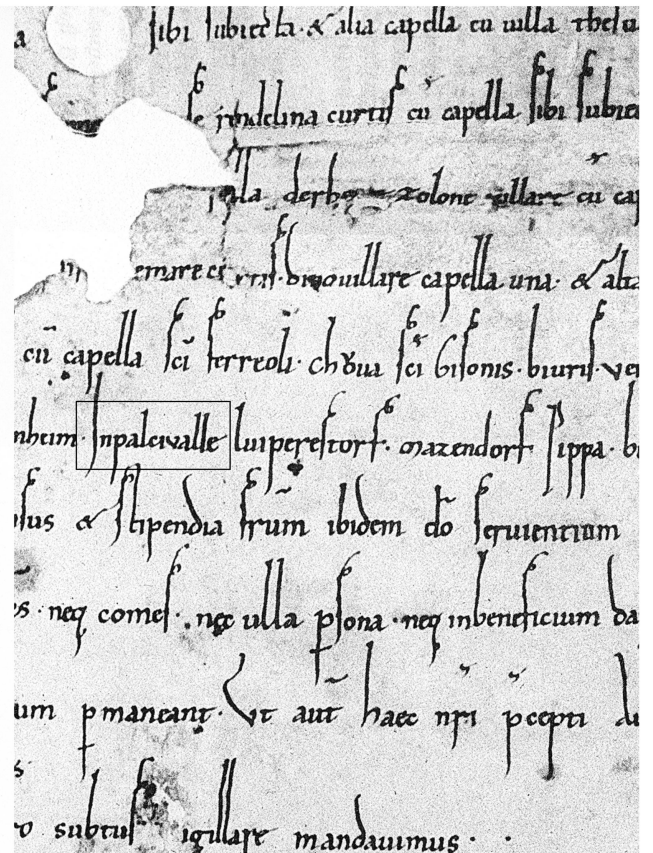 a sibi subiecta · & alia capella cū uilla thesu
se rindelina curtis cū capella sibi subiec
illa derbo tolone uillare cū cap
emare curtis · bruouillare capella una · & alia
cū capella sci ferreoli · sci bisonis · biuris · ve
nheim · Inpalciualle luiperestorf · mazendorf sippa · b
sus & stipendia frum ibidem do seruientium
es · neq comes · nec ulla psona · neq inbeneficium da
um pmaneant · Ut aut haec nri pcepti
subtus igillare mandauimus ·